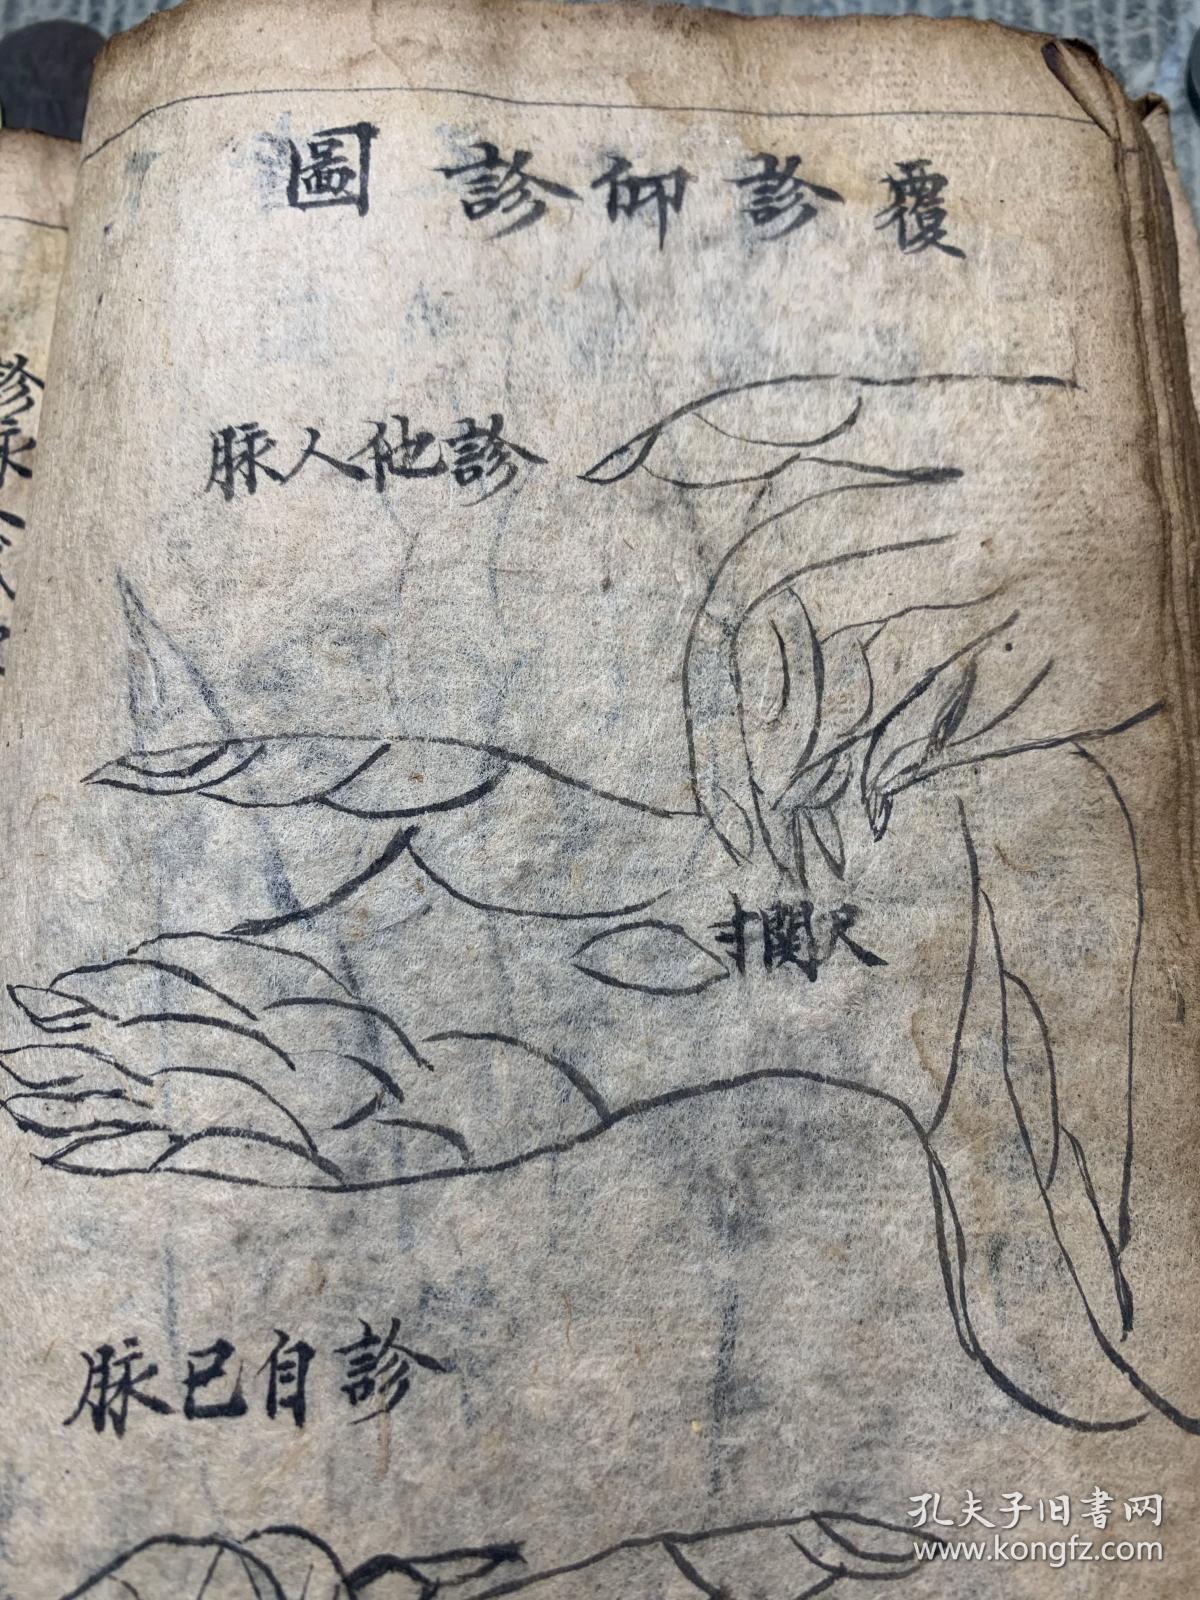 覆診仰診圖
診他人脉
寸関尺
診自已脉
診脉入式
孔夫子旧书网
www.kongfz.com